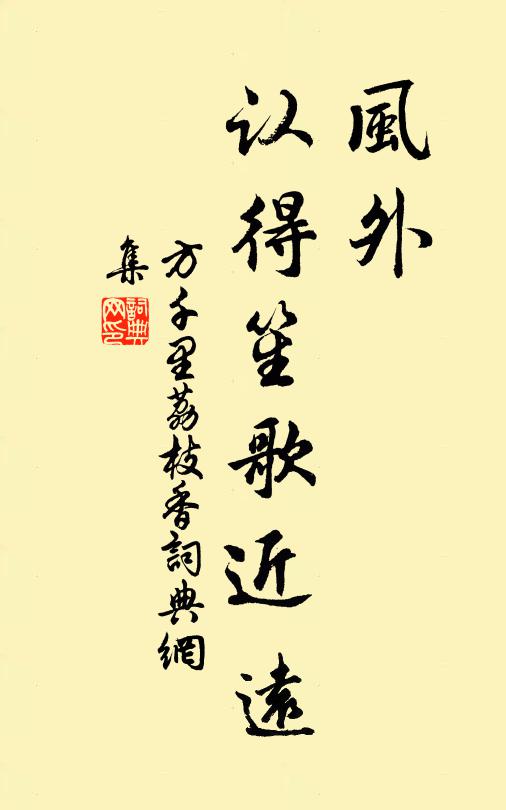 風外
认得笙歌近遠
方千里荔枝香詞典網
集
詞典
网印